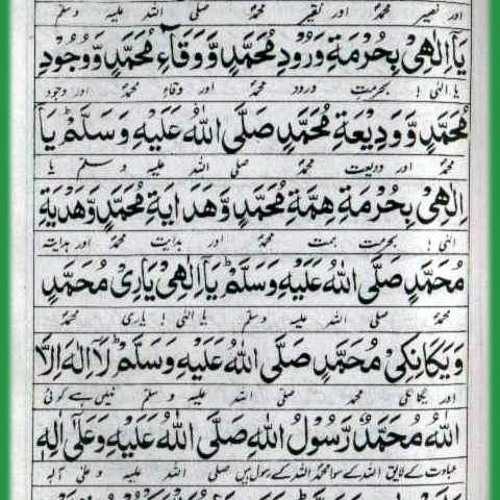 اور نصیر محمدؐ اور نقیر محمدؐ صلی اللہ علیہ وسلم
يَآ اِلٰهِیْ بِحُرْمَةِ وَرُوْدِ مُحَمَّدٍ وَّوَقَآءِ مُحَمَّدٍ وَّوُجُوْدِ
یا الٰہی ! بحرمت ورود محمدؐ اور وقاء محمدؐ اور وجود
مُحَمَّدٍ وَّوَدِيْعَةِ مُحَمَّدٍ صَلَّى اللهُ عَلَيْهِ وَسَلَّمَ ط يَآ
محمدؐ اور ودیعت محمدؐ صلی اللہ علیہ وسلم یا
اِلٰهِیْ بِحُرْمَةِ هِمَّةِ مُحَمَّدٍ وَّهَدَايَةِ مُحَمَّدٍ وَّهَدْيَةِ
الٰہی ! بحرمت ہمت محمدؐ اور ہدایت محمدؐ اور ہدایتہ
مُحَمَّدٍ صَلَّى اللهُ عَلَيْهِ وَسَلَّمَ ط يَآ اِلٰهِیْ يَارِیْ مُحَمَّدٍ
محمدؐ صلی اللہ علیہ وسلم یا الٰہی ! یاری محمدؐ
وَيَگَانَگِیْ مُحَمَّدٍ صَلَّى اللهُ عَلَيْهِ وَسَلَّمَ ط لَآ اِلٰهَ اِلَّا
اور یگانگی محمد صلی اللہ علیہ وسلم نہیں ہے کوئی
اللهُ مُحَمَّدٌ رَّسُوْلُ اللهِ صَلَّى اللهُ عَلَيْهِ وَعَلٰٓى اٰلِهٖ
عبادت کے لایق اللہ کے سوا محمدؐ اللہ کے رسول ہیں صلی اللہ علیہ و علیٰ آلہ